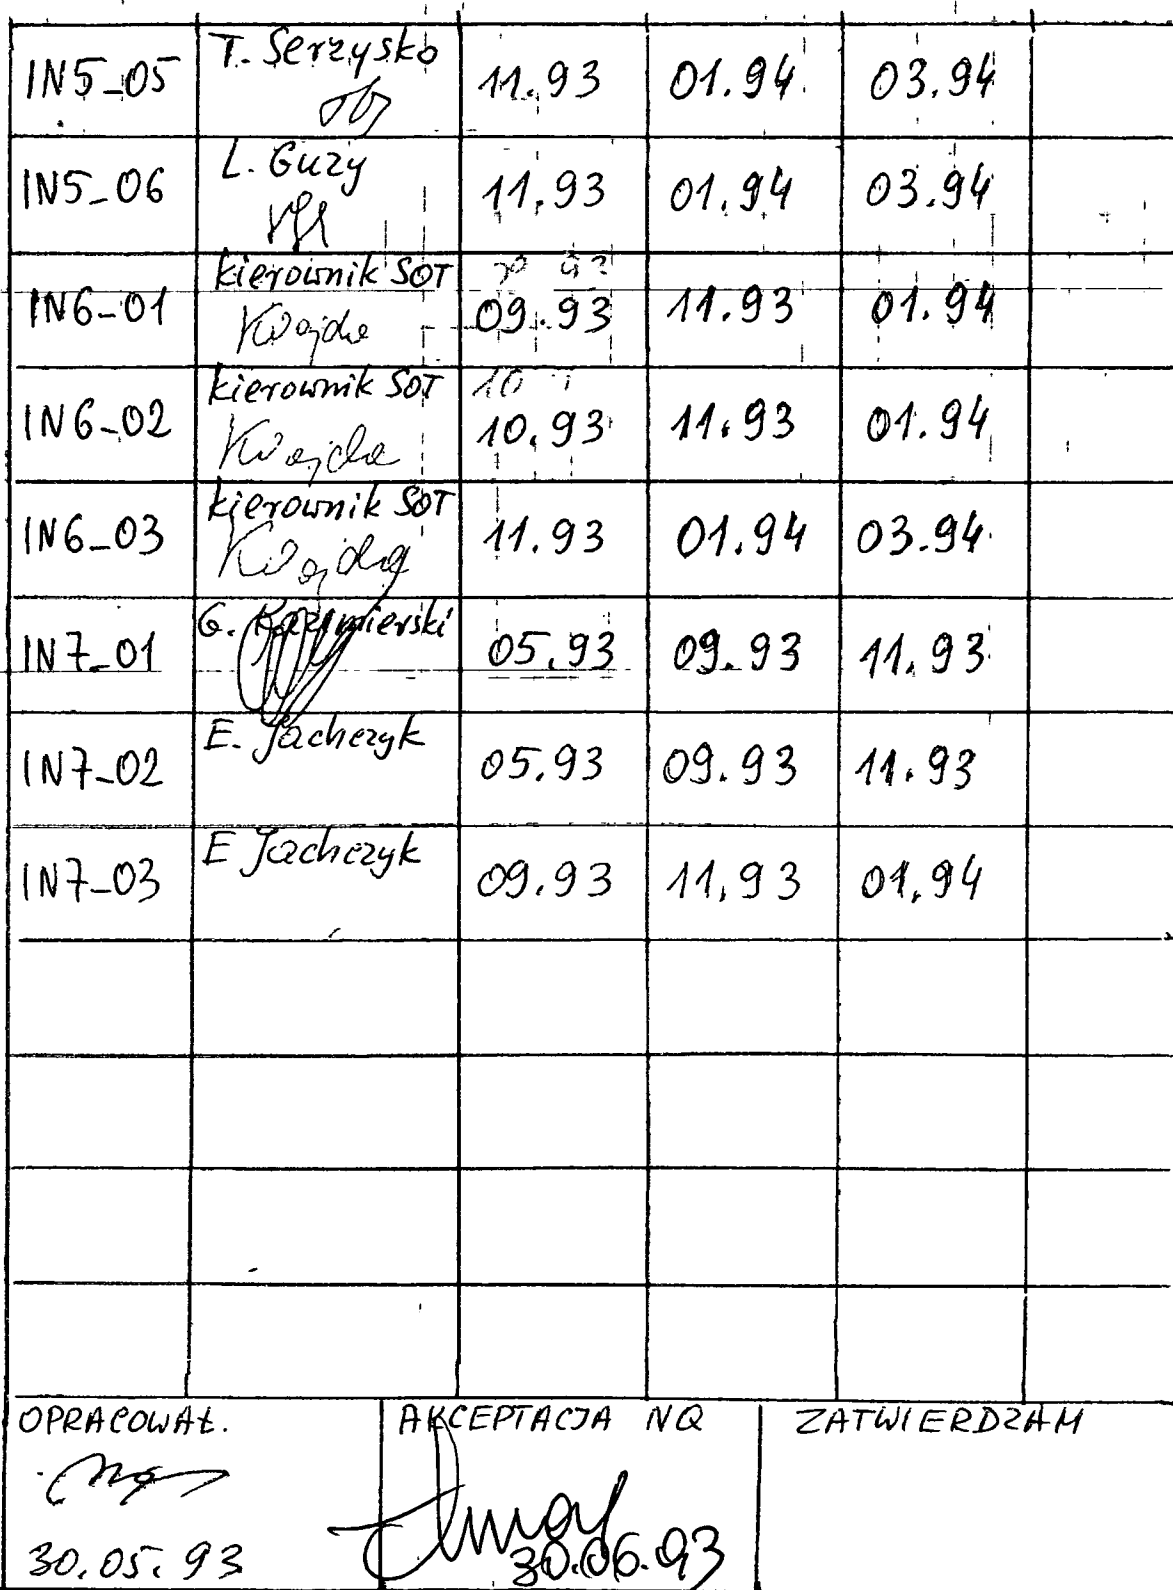 IN5-05 T. Serzysko 11.93 01.94 03.94
IN5-06 L. Guzy 11.93 01.94 03.94
IN6-01 kierownik SOT 09.93 11.93 01.94
IN6-02 kierownik SOT 10 10.93 11.93 01.94
IN6-03 kierownik SOT 11.93 01.94 03.94
IN7-01 G. Kazimierski 05.93 09.93 11.93
IN7-02 E. Jachczyk 05.93 09.93 11.93
IN7-03 E Jachczyk 09.93 11.93 01.94
OPRACOWAŁ. AKCEPTACJA NQ ZATWIERDZAM
30.05.93 30.06.93